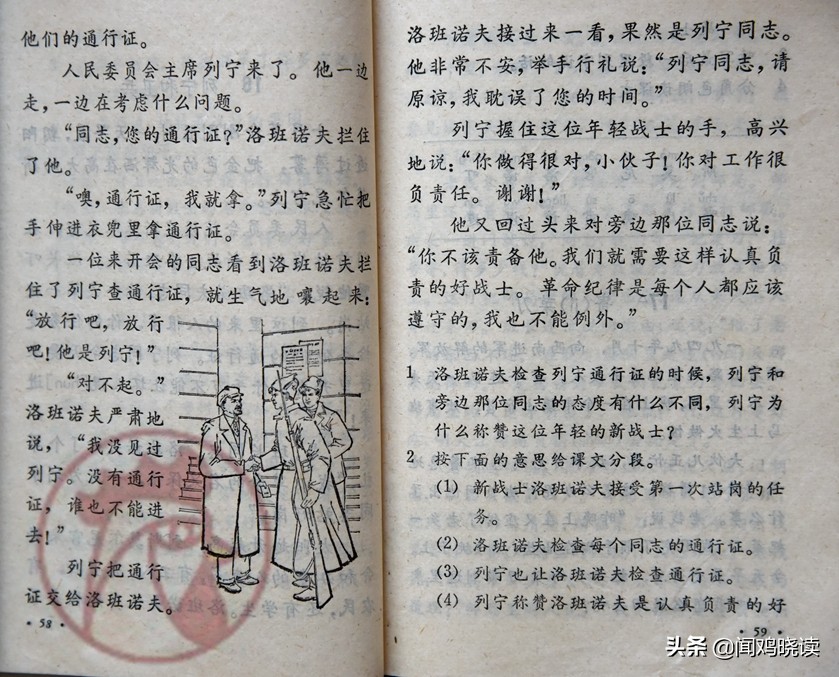 他们的通行证。
人民委员会主席列宁来了。他一边
走，一边在考虑什么问题。
“同志，您的通行证？”洛班诺夫拦住
了他。
“噢，通行证，我就拿。”列宁急忙把
手伸进衣兜里拿通行证。
一位来开会的同志看到洛班诺夫拦
住了列宁查通行证，就生气地嚷起来：
“放行吧，放行
吧！他是列宁！”
“对不起。”
洛班诺夫严肃地
说，“我没见过
列宁。没有通行
证，谁也不能进
去！”
列宁把通行
证交给洛班诺夫。
·58·
洛班诺夫接过来一看，果然是列宁同志。
他非常不安，举手行礼说：“列宁同志，请
原谅，我耽误了您的时间。”
列宁握住这位年轻战士的手，高兴
地说：“你做得很对，小伙子！你对工作很
负责任。谢谢！”
他又回过头来对旁边那位同志说：
“你不该责备他。我们就需要这样认真负
责的好战士。革命纪律是每个人都应该
遵守的，我也不能例外。”
1 洛班诺夫检查列宁通行证的时候，列宁和
旁边那位同志的态度有什么不同，列宁为
什么称赞这位年轻的新战士？
2 按下面的意思给课文分段。
(1) 新战士洛班诺夫接受第一次站岗的任
务。
(2) 洛班诺夫检查每个同志的通行证。
(3) 列宁也让洛班诺夫检查通行证。
(4) 列宁称赞洛班诺夫是认真负责的好
·59·
头条 @闻鸡晓读